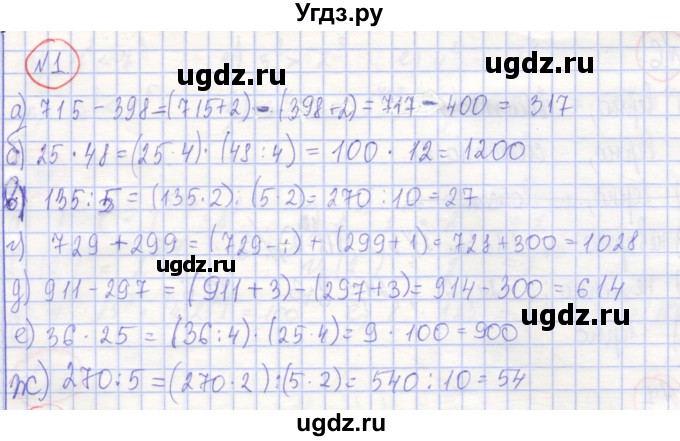 Угдз.ру
№1
ugdz.ru
а) 715 - 398 = (715+2) - (398+2) = 717 - 400 = 317
б) 25 · 48 = (25 · 4) · (48 : 4) = 100 · 12 = 1200
в) 135 : 5 = (135 · 2) : (5 · 2) = 270 : 10 = 27
г) 729 + 299 = (729 - 1) + (299 + 1) = 728 + 300 = 1028
ugdz.ru
д) 911 - 297 = (911 + 3) - (297 + 3) = 914 - 300 = 614
ugdz.ru
е) 36 · 25 = (36 : 4) · (25 · 4) = 9 · 100 = 900
ж) 270 : 5 = (270 · 2) : (5 · 2) = 540 : 10 = 54
ugdz.ru